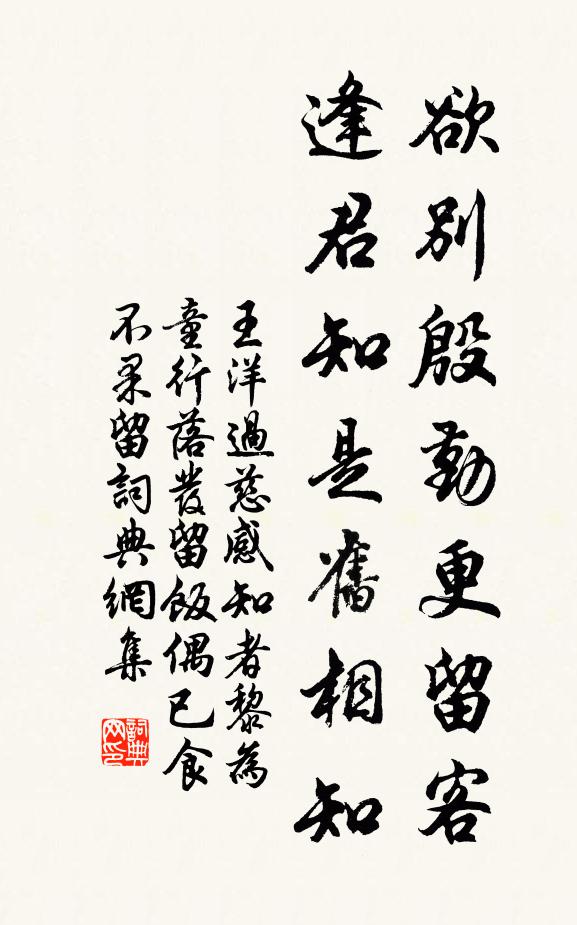 欲別殷勤更留客
逢君知是舊相知
王洋過慈感知者黎為
童行落發留飯偶已食
不果留詞典網集
詞典网印